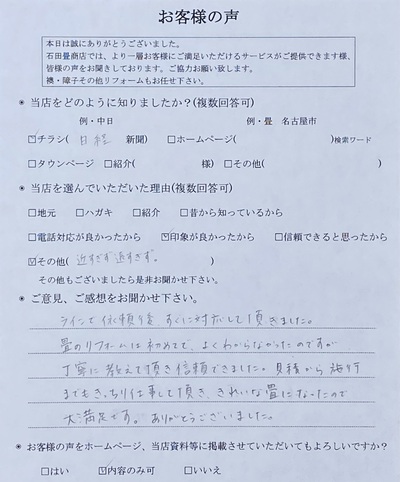 お客様の声
本日は誠にありがとうございました。
石田畳商店では、より一層お客様にご満足いただけるサービスがご提供できます様、
皆様の声をお聞きしております。ご協力お願い致します。
襖・障子その他リフォームもお任せ下さい。
◉ 当店をどのように知りましたか?(複数回答可)
例・中日 例・畳 名古屋市
☑チラシ( 日経 新聞) □ホームページ( )検索ワード
□タウンページ □紹介( 様) □その他( )
◉ 当店を選んでいただいた理由(複数回答可)
□地元 □ハガキ □紹介 □昔から知っているから
□電話対応が良かったから ☑印象が良かったから □信頼できると思ったから
☑その他( 近すぎず遠すぎず。 )
その他もございましたら是非お聞かせ下さい。
◉ ご意見、ご感想をお聞かせ下さい。
ラインで依頼後、すぐに対応して頂きました。
畳のリフォームは初めてで、よくわからなかったのですが
丁寧に教えて頂き信頼できました。見積から施行
まできっちり仕事して頂き、きれいな畳になったので
大満足です。ありがとうございました。
◉ お客様の声をホームページ、当店資料等に掲載させていただいてもよろしいですか?
□はい ☑内容のみ可 □いいえ